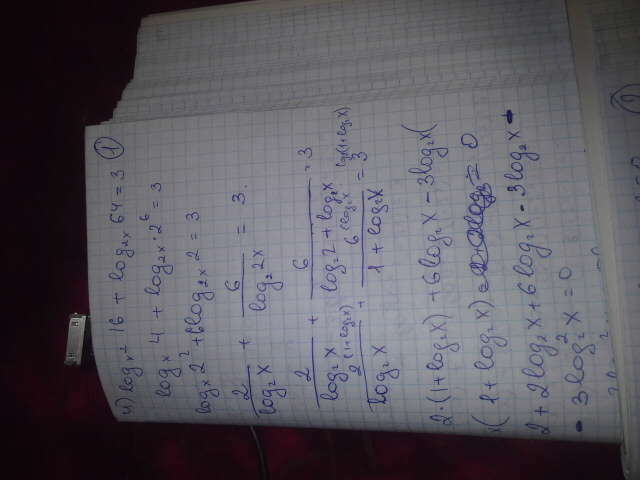 и) log_{x²} 16 + log_{2x} 64 = 3 ①
log_x 4 + log_{2x} · 2⁶ = 3
log_x 2² + 6log_{2x} 2 = 3
2/log₂x + 6/log₂2x = 3.
2/log₂x + 6/(log₂2 + log₂x) = 3
2 (1+log₂x)/log₂x + 6 (log₂x)/(1 + log₂x) = 3 log₂x(1+log₂x)
2·(1+log₂x) + 6log₂x - 3log₂x(
x(1+log₂x) = 0
2 + 2log₂x + 6log₂x - 3log₂x -
- 3log₂²x = 0